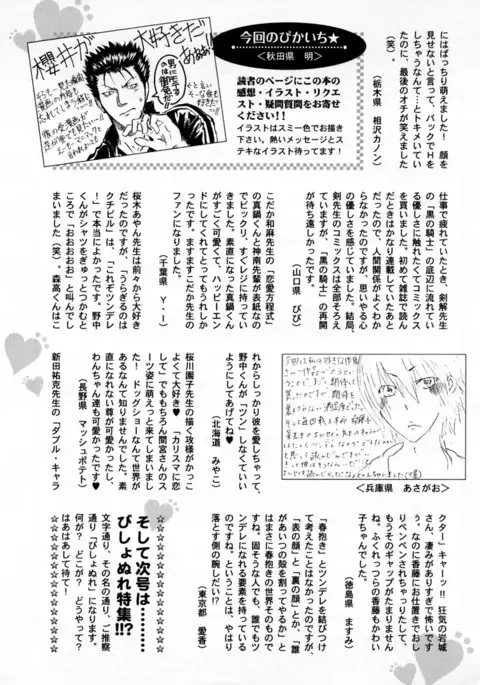 今回のぴかいち★
＜秋田県　明＞
読者のページにこの本の
感想・イラスト・リクエ
スト・疑問質問をお寄せ
ください!!
イラストはスミ一色でお描き
下さい。熱いメッセージとス
テキなイラスト待ってます！
櫻井が
大好きだ
あぁぁ!
にはばっちり萌えました！　顔を
見せないと言って、バックでＨを
しちゃうなんて…とトキメいてい
たのに、最後のオチが笑えました
（笑）。
（栃木県　相沢カノン）
仕事で疲れていたとき、剣解先生
の「黒の騎士」の底辺に流れてい
る優しさに触れたくてコミックス
を買いました。初めて雑誌で読ん
だときはかなり連載していたあと
だったので、人間関係がよくわか
らなかったのですが、思いやる心
の優しさを感じていました。結局、
剣先生のコミックスは全部そろえ
ていますが、「黒の騎士」の再開
が待ち遠しかったです。
（山口県　びび）
こだか和麻先生の「恋愛方程式」
の真鍋くんと神南先輩が表紙なの
でビックリ、すぐレジに持ってい
きました。素直になった真鍋くん
がすごく可愛くて、ハッピーエン
ドにしてくれてとってもうれしか
ったです。ますますこだか先生の
ファンになりました。
（千葉県　Ｙ・Ｉ）
桜木あやん先生は前々から大好き
だったのですが、「うらぎるのは
クチビル」は、「これぞツンデレ
！」で本当によかったです。野中
くんがシャツをぎゅっとつかむと
ころで「おおおおお」と叫んでし
まいました（笑）　森高くんはこ
れからしっかり彼を愛しちゃって、
野中くんが「ツン」しなくていい
ようにしてあげてね♥
（北海道　みやこ）
桜川園子先生の描く攻様がかっこ
よくて大好き♥　「カリスマに恋
して」でももちろん間宮さんのス
ーツ姿に萌えっと来てしまいまし
た！　ドッグショーなんて世界が
あるなんて知りませんでした。素
直になれない尊が可愛かったし、
わんちゃん達も可愛かったです♥
（長野県　マッシュポテト）
新田祐克先生の「ダブル・キャラ
＜兵庫県　あさがお＞
クター」キャーッ!!　狂気の岩城
さん、凄みがありすぎて怖いです
ぅ。なのに香藤にお仕置きでおし
りペンペンされちゃったりして、
もうそのギャップがたまりません
ね。ふくれっつらの香藤もかわい
子ちゃんでした。
（徳島県　ますみ）
「春抱き」とツンデレを結びつけ
て考えたことはなかったのですが、
「表の顔」と「裏の顔」とか、「誰
があいつの殻を割ってやるか」と
はまさに春抱きの世界そのもので
すね。固そうな人でも、誰でもツ
ンデレになれる要素を持っている
のですね。ということは、やはり
落とす側の腕しだい!?
（東京都　愛香）
☆☆☆☆☆☆☆☆☆☆☆☆☆☆
そして次号は………
びしょぬれ特集!!?
☆☆☆☆☆☆☆☆☆☆☆☆☆☆
文字通り、その名の通り、ご推察
通り「びしょぬれ」になります。
何が？　どこが？　どうやって？
はあはあして待て！